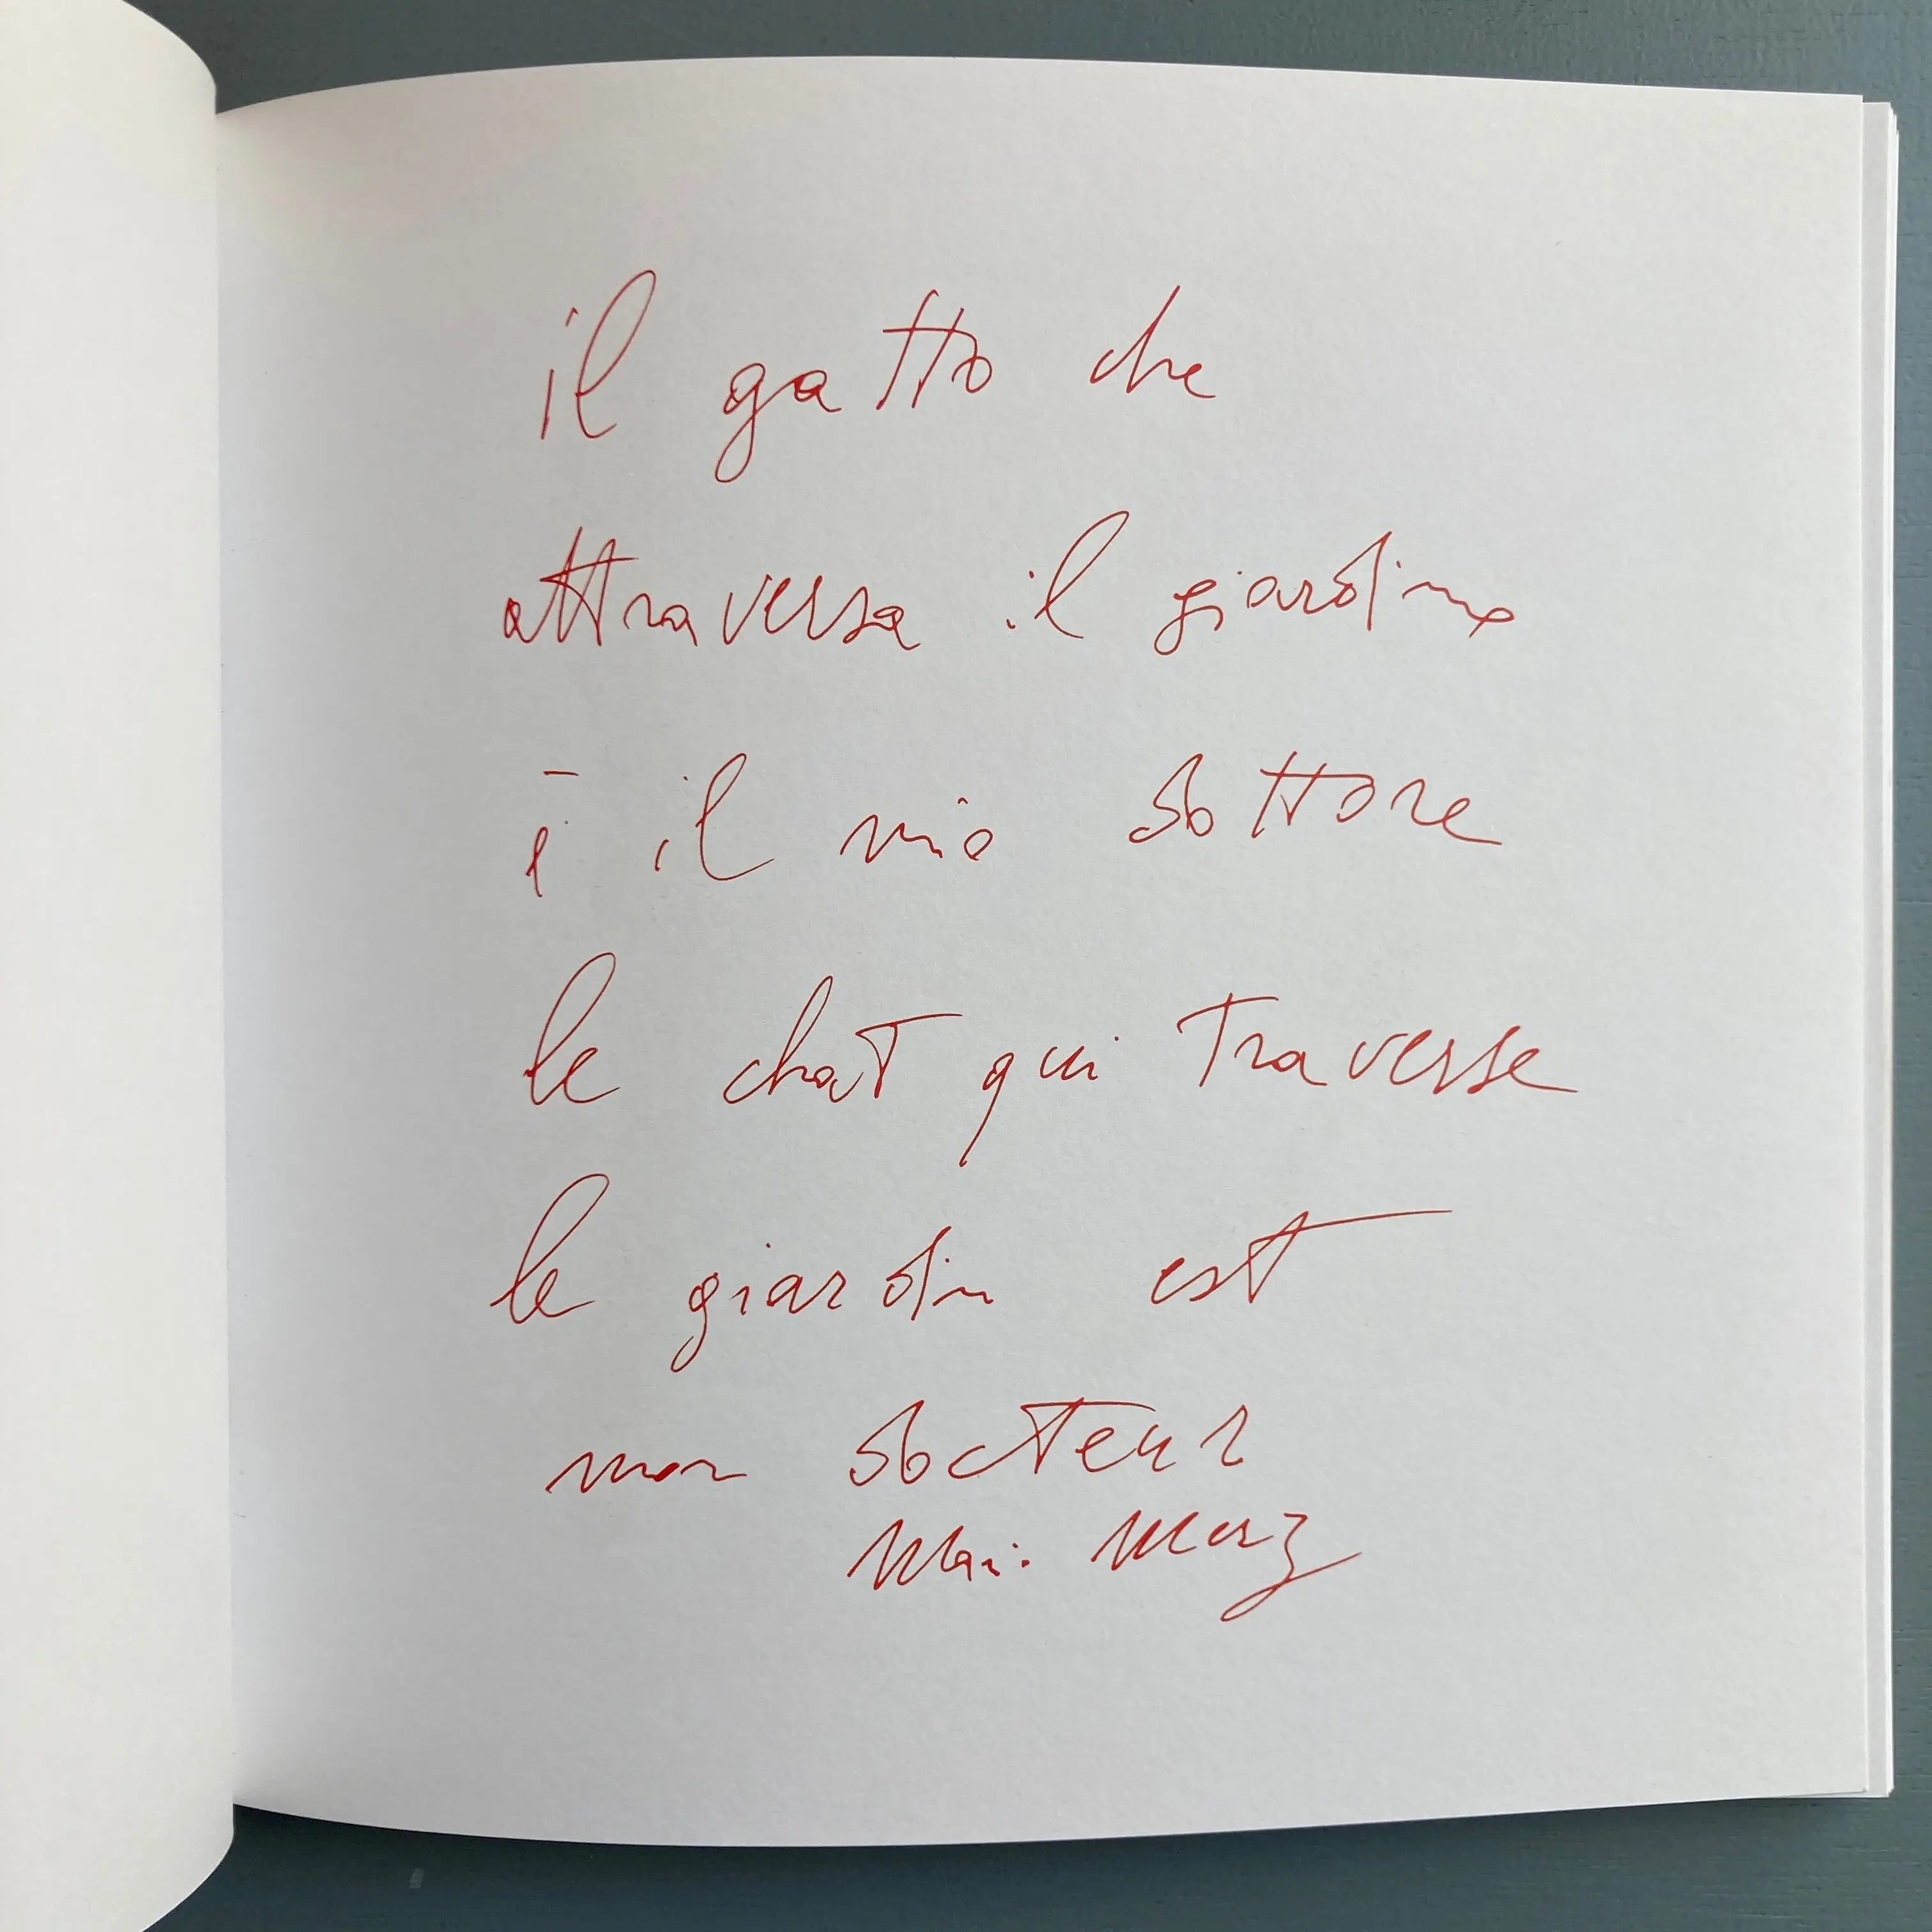 il gatto che
attraversa il giardino
è il mio dottore
le chat qui traverse
le giardin est
mon docteur
Mari. Merz